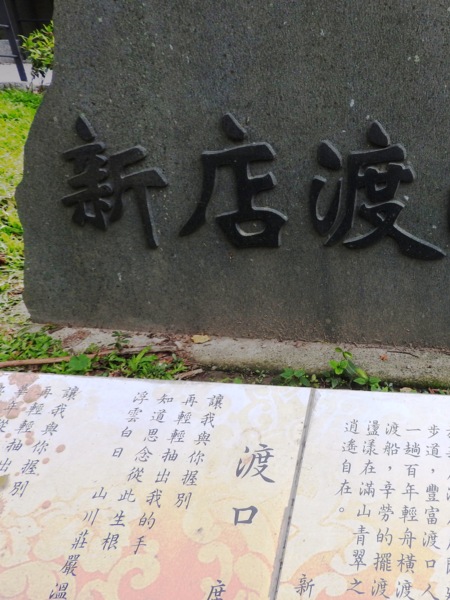 新店渡
步道，豐富渡口人
一趟百年輕舟橫渡
渡船，辛勞的擺渡
盪漾在滿山青翠之
逍遙自在。
新
渡口
讓我與你握別
再輕輕抽出我的手
知道思念從此生根
浮雲白日 山川莊嚴溫
讓我與你握別
再輕輕抽出